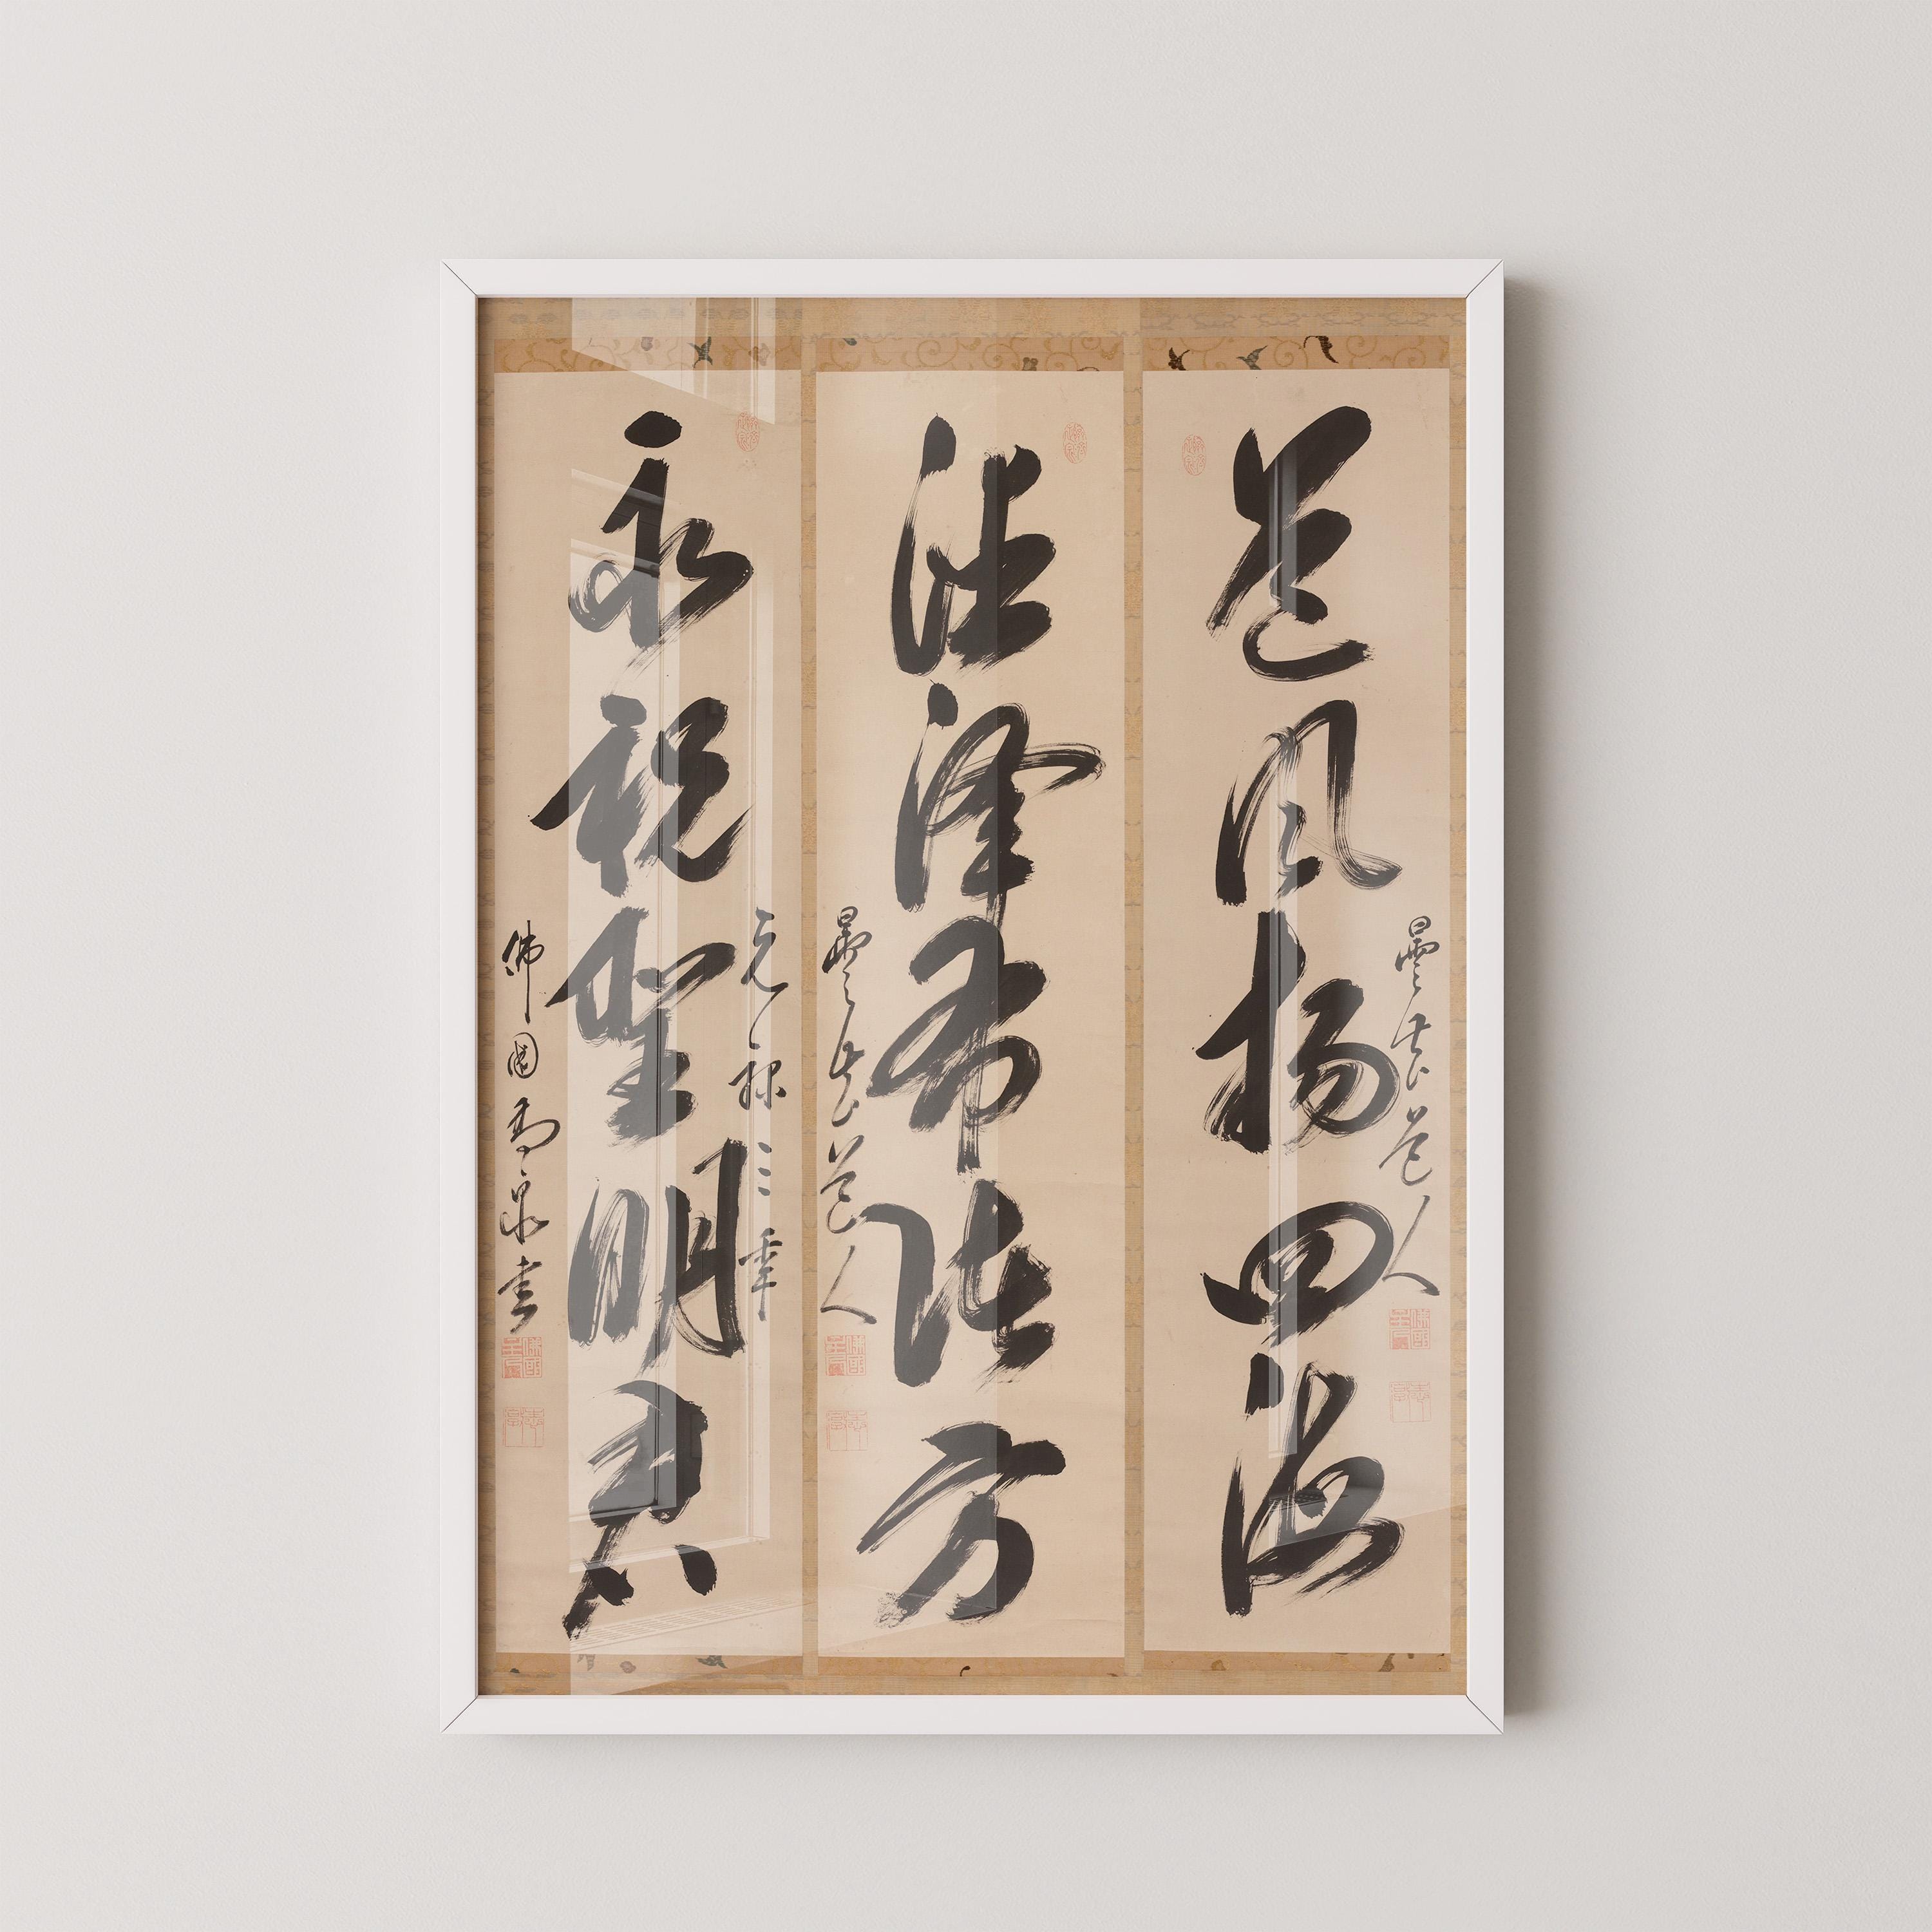 曇華道人
道風揚四海
法澤布諸方
曇華道人
元祿三年
永祝聖明君
佛國高泉書